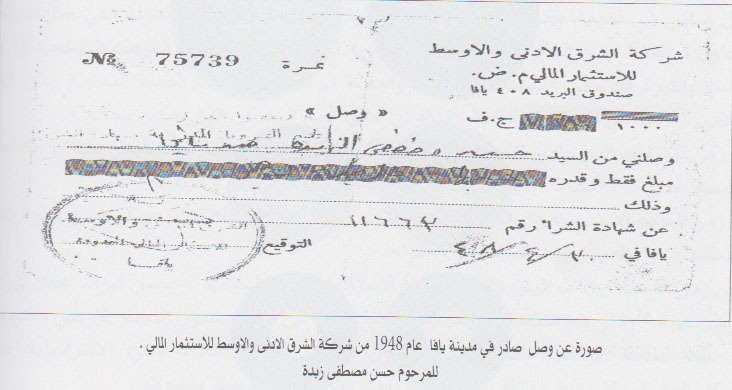 شركة الشرق الادنى والاوسط
للاستثمار المالي م. ض.
صندوق البريد ٤٠٨ يافا
نمرة 75739 №
« وصل »
١٠٠٠ ج.ف
وصلني من السيد حسن مصطفى
مبلغ فقط وقدره
وذلك
عن شهادة الشراء رقم
يافا في
التوقيع
صورة عن وصل صادر في مدينة يافا عام 1948 من شركة الشرق الادنى والاوسط للاستثمار المالي .
للمرحوم حسن مصطفى زبدة